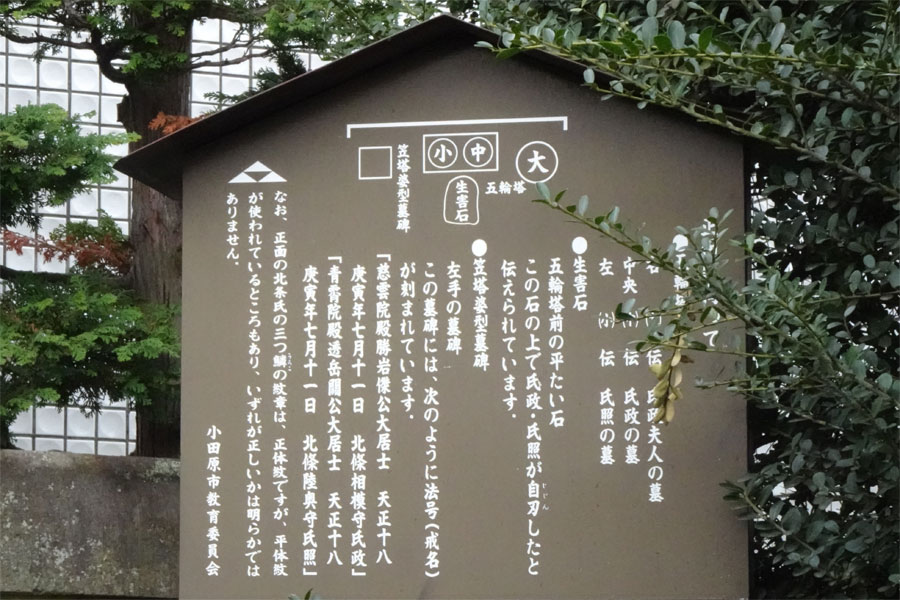 大
中
小
五輪塔
生害石
笠塔婆型墓碑
いて
伝 氏政夫人の墓
中央 伝 氏政の墓
左 (小) 伝 氏照の墓
●生害石
五輪塔前の平たい石
この石の上で氏政・氏照が自刃したと
じじん
伝えられています。
●笠塔婆型墓碑
左手の墓碑
この墓碑には、次のように法号(戒名)
が刻まれています。
「慈雲院殿勝岩傑公大居士 天正十八
庚寅年七月十一日 北條相模守氏政」
「青霄院殿透岳關公大居士 天正十八
庚寅年七月十一日 北條陸奥守氏照」
なお、正面の北条氏の三つ鱗の紋章は、正体紋ですが、平体紋
が使われているところもあり、いずれが正しいかは明らかでは
ありません。
小田原市教育委員会